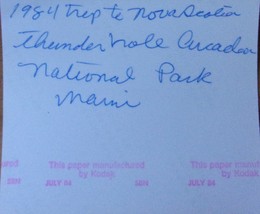 1984 trip to Nova Scotia
Thunder Hole Acadia
National Park
Maine
This paper manufactured
by Kodak
JULY 84
This paper manuf
by Kodak
JULY 84